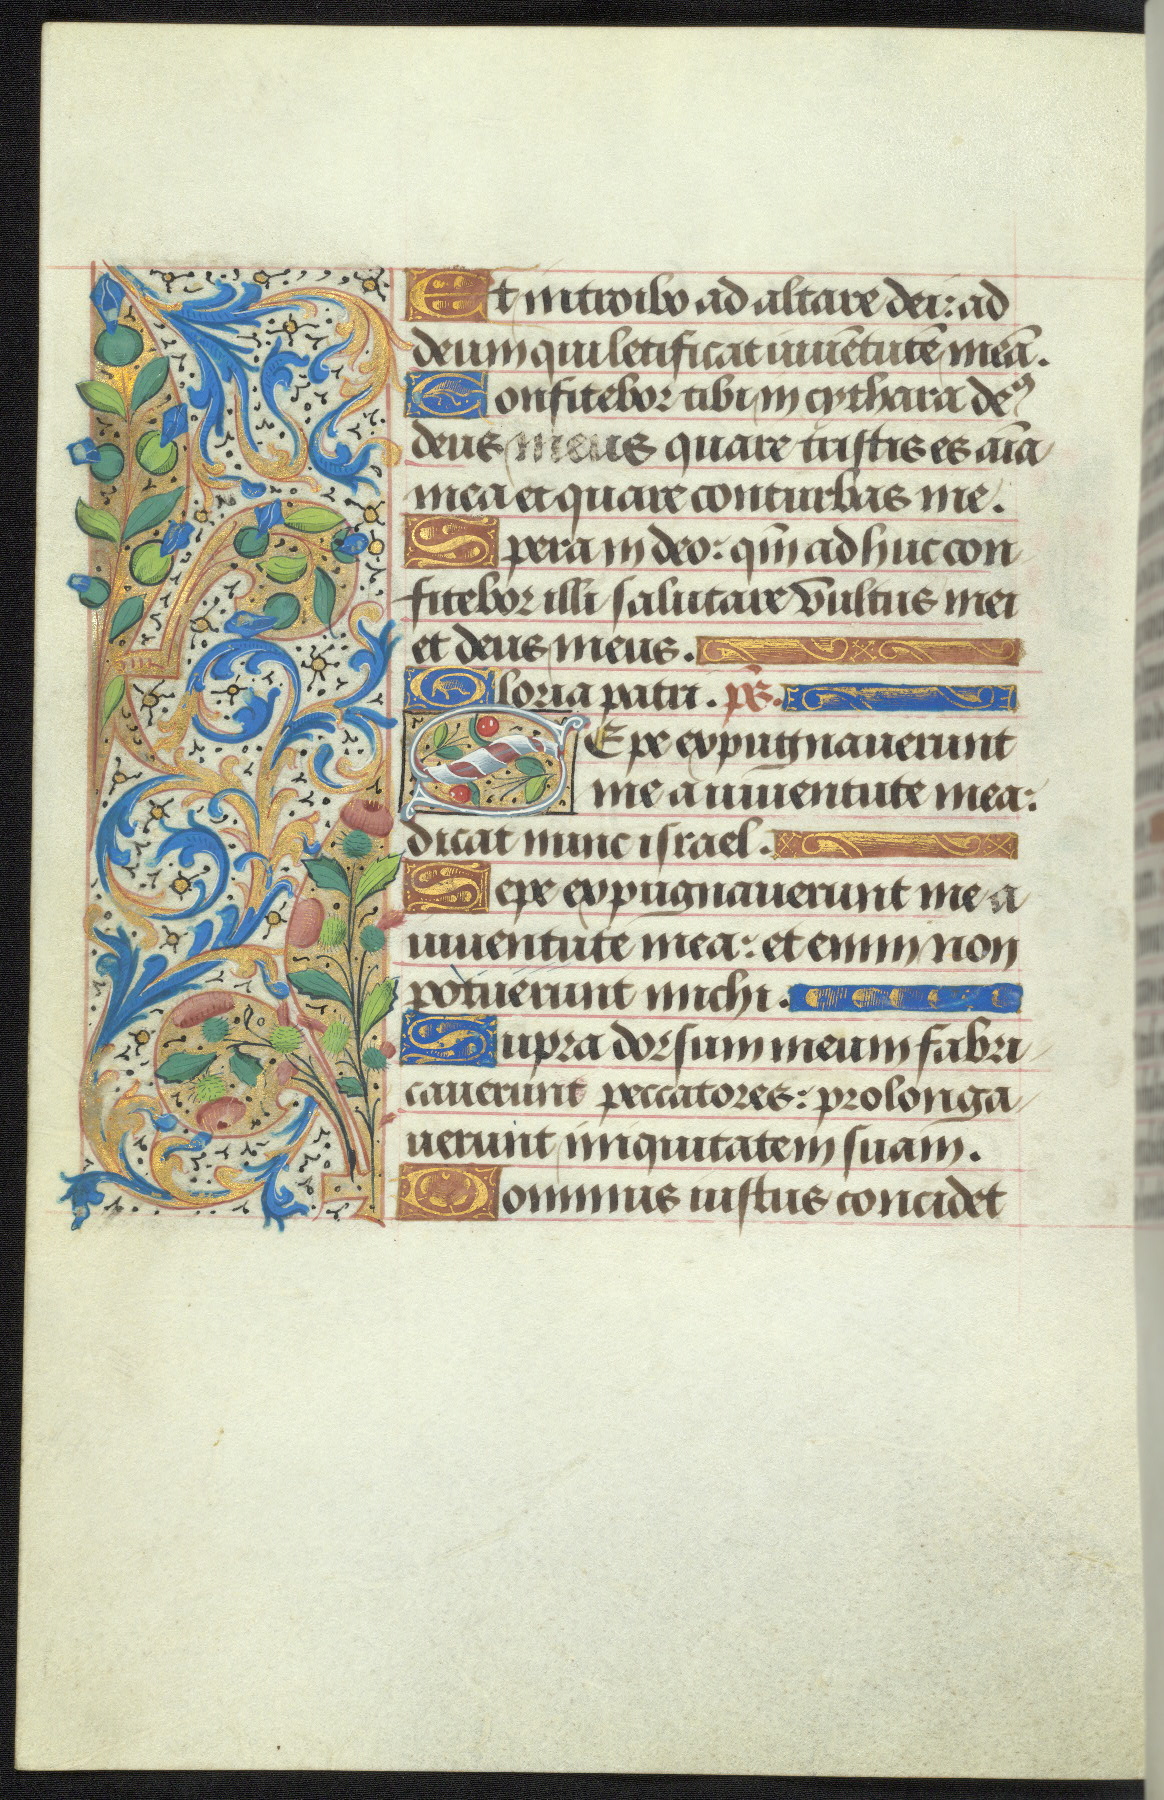 Et introibo ad altare dei: ad
deum qui letificat iuuētutē meā.
Confitebor tibi in cythara de⁹
deus meus quare tristis es aīa
mea et quare conturbas me.
Spera in deo: qm̄ adhuc con
fitebor illi salutare vultus mei
et deus meus.
Gloria patri. p̄s.
SEpe expugnauerunt
me a iuuentute mea:
dicat nunc israel.
Sepe expugnauerunt me a
iuuentute mea: et enim non
potuerunt michi.
Supra dorsum meum fabri
cauerunt peccatores: prolonga
uerunt iniquitatem suam.
Dominus iustus concidet